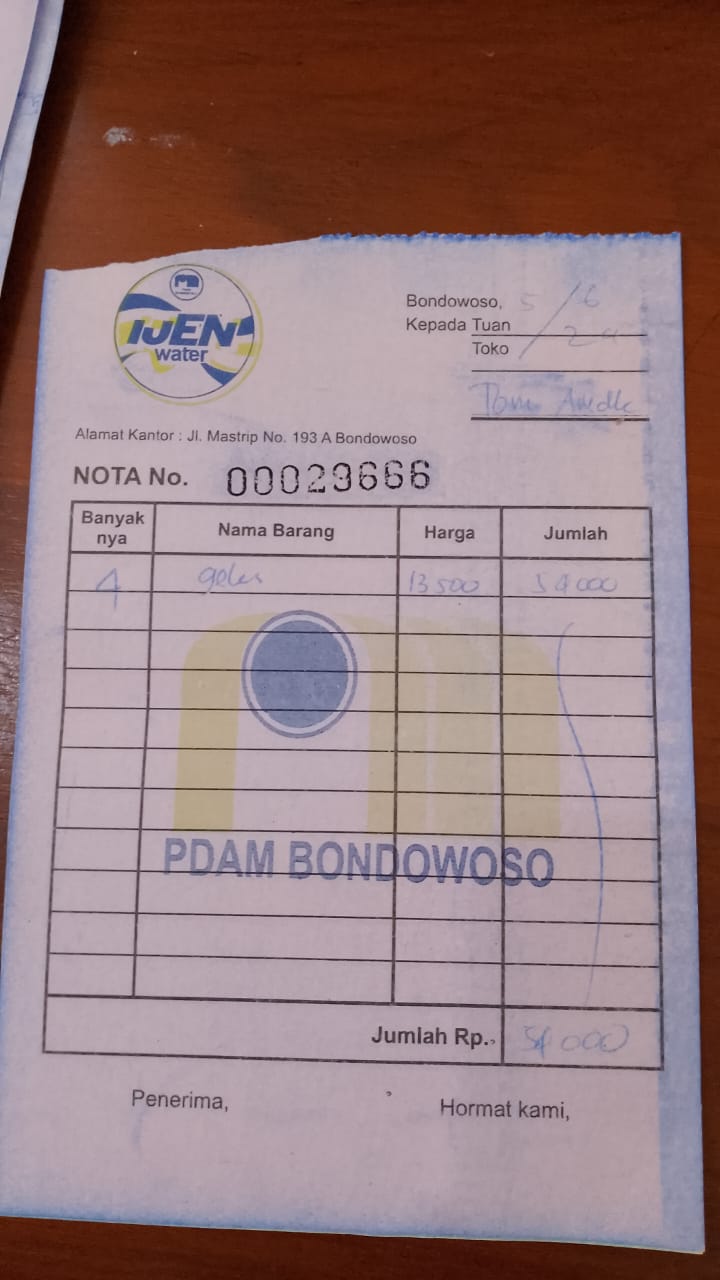 IJEN
water
Bondowoso, 5/6
Kepada Tuan
Toko
Alamat Kantor : Jl. Mastrip No. 193 A Bondowoso
NOTA No. 00029666
Banyak nya Nama Barang Harga Jumlah
4 gelas 13 500 54 000
PDAM BONDOWOSO
Jumlah Rp.. 54 000
Penerima, Hormat kami,